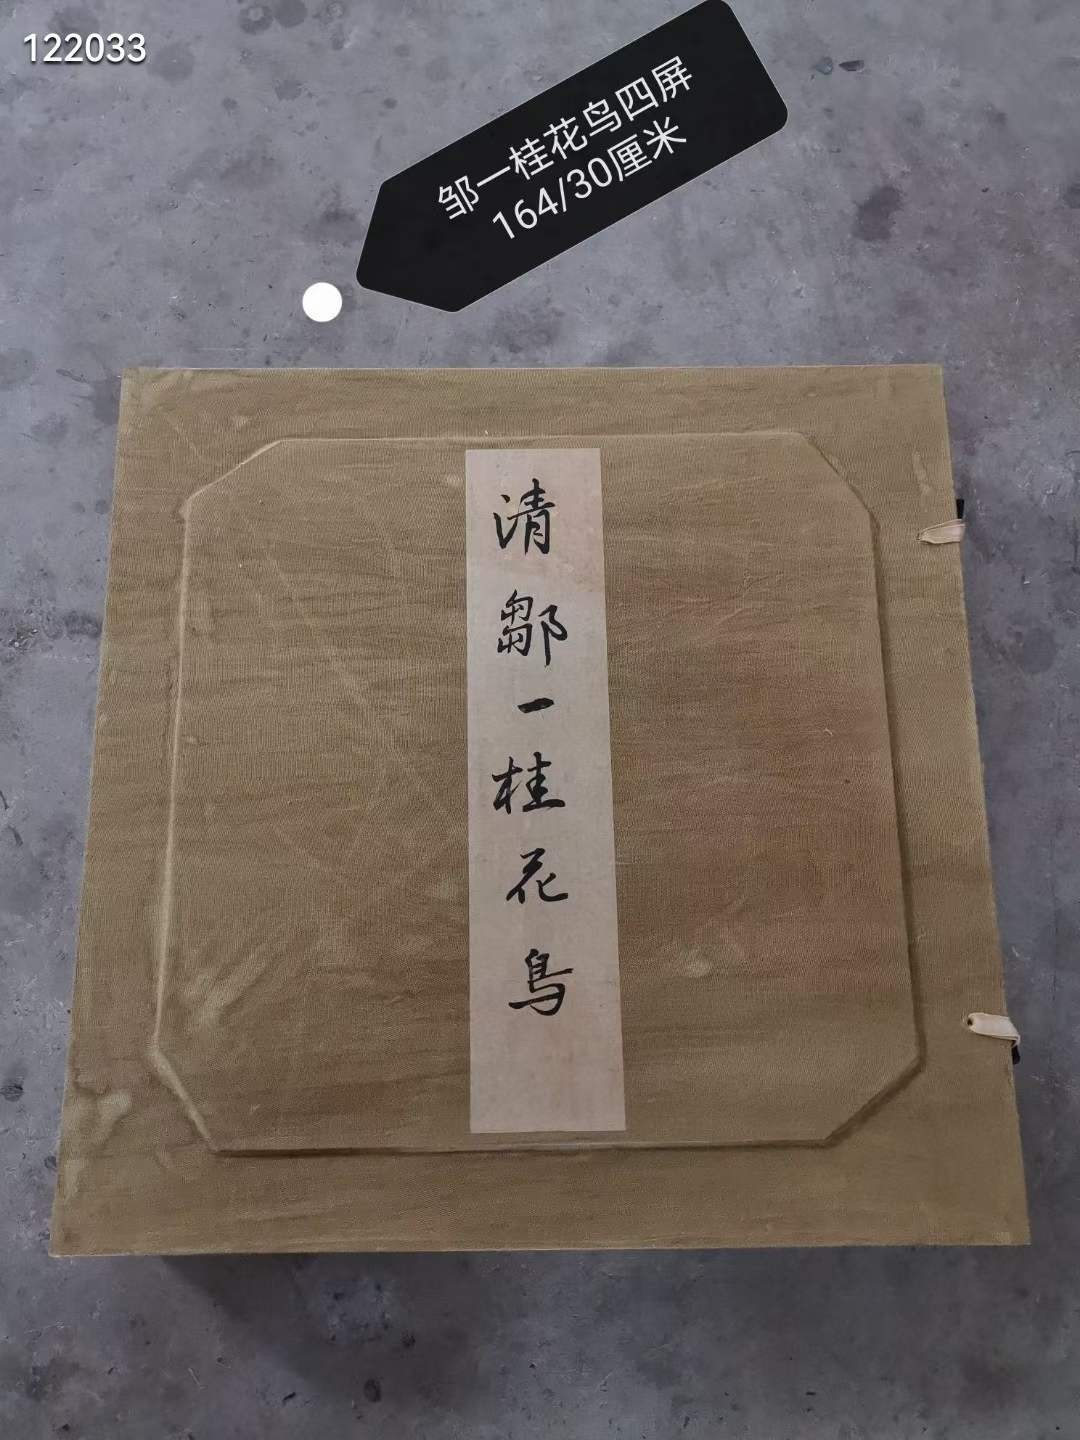 122033
邹一桂花鸟四屏
164/30厘米
清鄒一桂花鸟